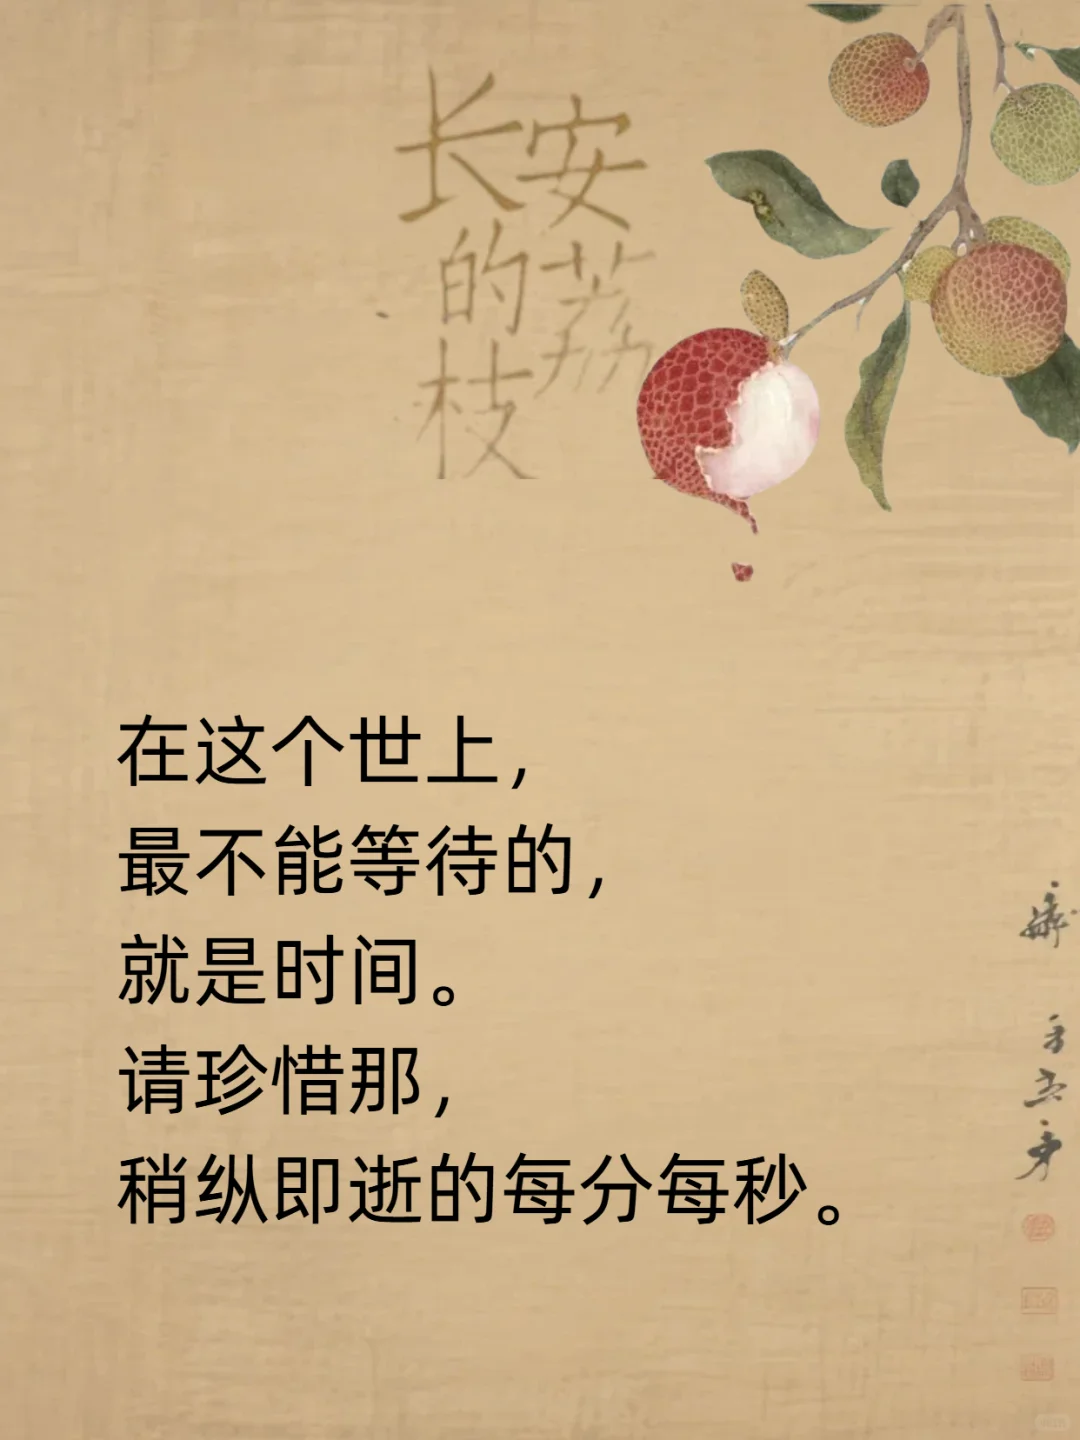 长安
的荔
枝
在这个世上，
最不能等待的，
就是时间。
请珍惜那，
稍纵即逝的每分每秒。